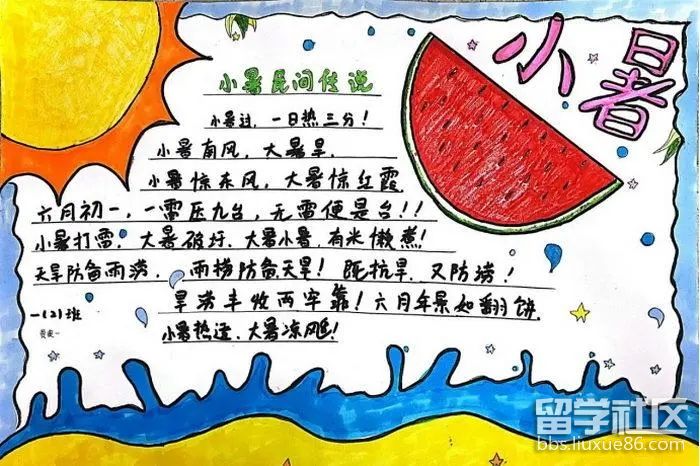 小暑
小暑民间传说
小暑过，一日热三分！
小暑南风，大暑旱。
小暑惊东风，大暑惊红霞
六月初一，一雷压九台，无雷便是台！！
小暑打雷，大暑破圩．大暑小暑，有米懒煮！
天旱防备雨涝，雨捞防备天旱！既抗旱，又防涝！
旱涝丰收两牢靠！六月年景如翻饼．
小暑热透，大暑凉飕！
一(2)班
留学社区
bbs.liuxue86.com